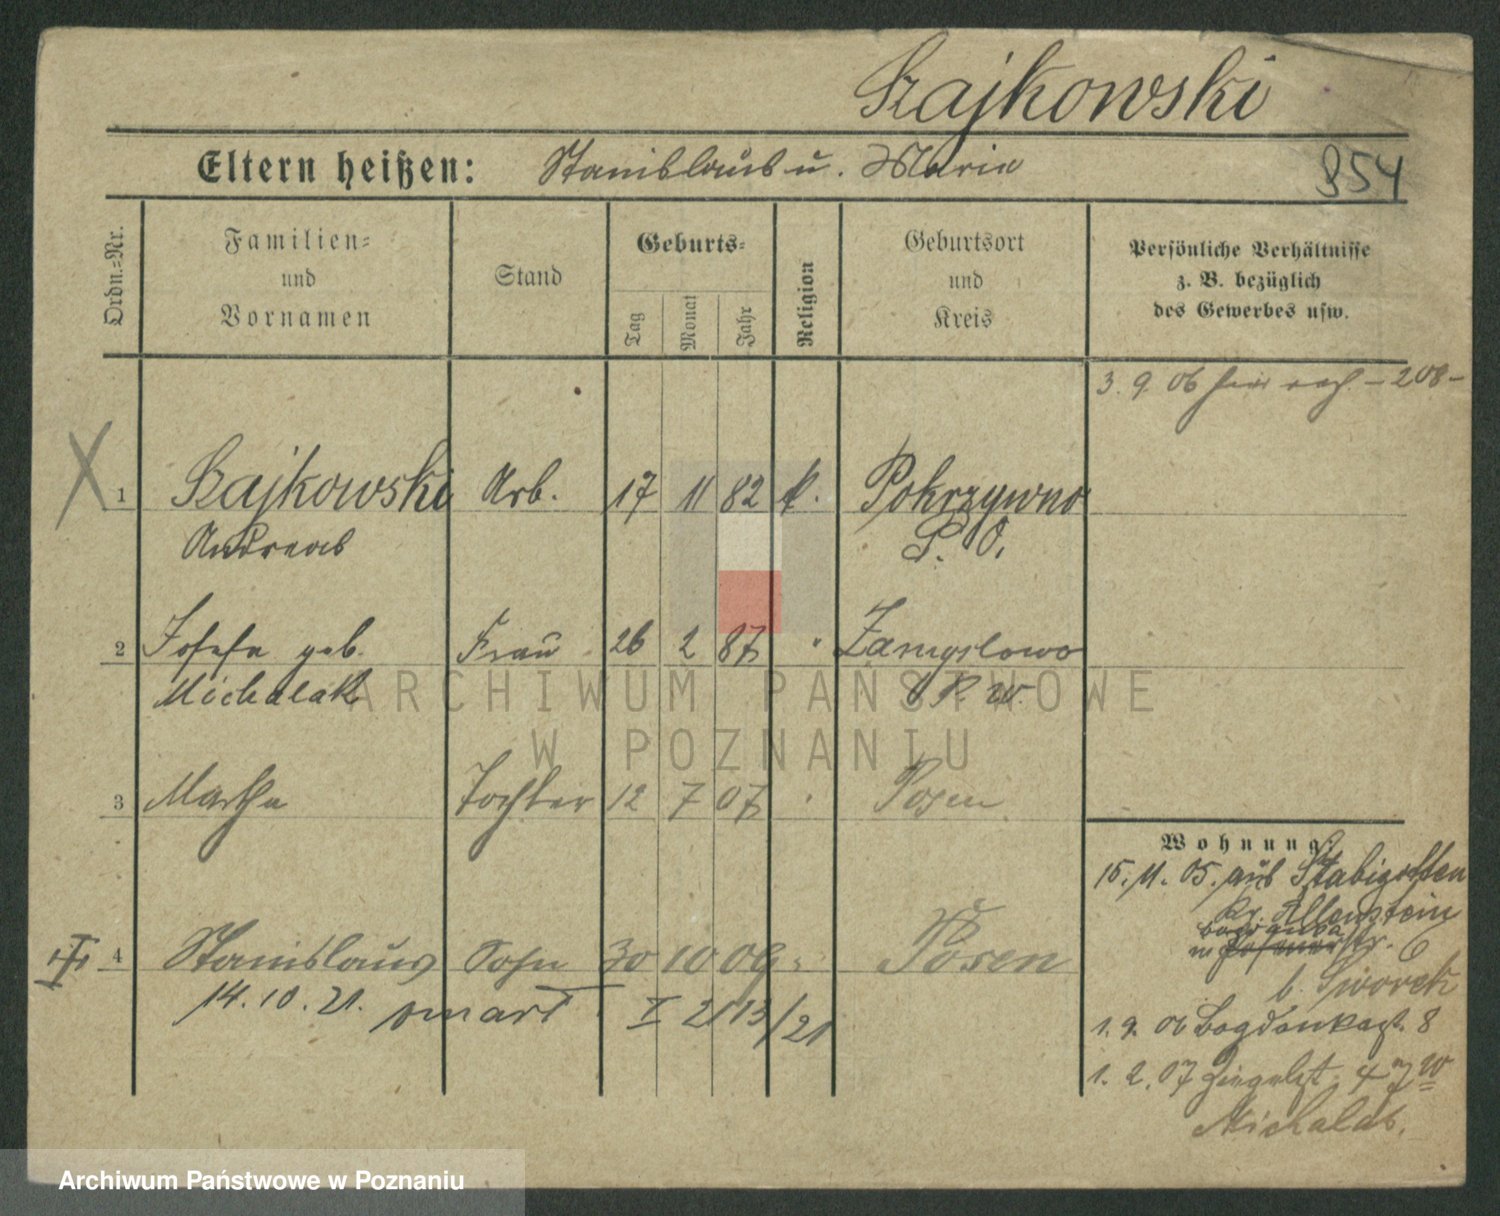 Szajkowski
Eltern heißen: Stanislaus u. Maria
854
Ordn.-Nr.
Familien-
und
Vornamen
Stand
Geburts-
Tag
Monat
Jahr
Religion
Geburtsort
und
Kreis
Persönliche Verhältnisse
z. B. bezüglich
des Gewerbes usw.
3. 9. 06 - 208 -
X 1 Szajkowski Arb. 17 11 82 k. Pokrzywno
Andreas P. O.
2 Josefa geb. Frau 26 2 87 " Zamyslowo
Michalak P. W.
3 Martha Tochter 12 7 07 " Posen
4 Stanislaus Sohn 30 10 09 " Posen
14. 10. 21. I 2113/21
Wohnung:
15. 11. 05. aus Stabigotten
Kr. Allenstein
str. 6
b. Sworek
1. 9. 06 Bogdankagt. 8
1. 2. 07 Ziegelgt. 47 w
Michalak.
ARCHIWUM PAŃSTWOWE
W POZNANIU
Archiwum Państwowe w Poznaniu